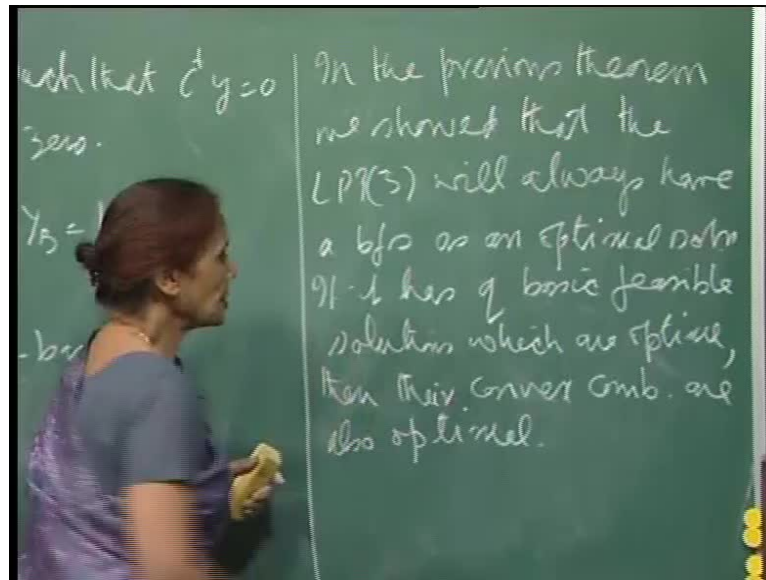 such that c^t y = 0
zero.
y_5 =
In the previous theorem
we showed that the
LPP(3) will always have
a bfs as an optimal soln
If it has q basic feasible
solutions which are optimal,
then their convex comb. are
also optimal.